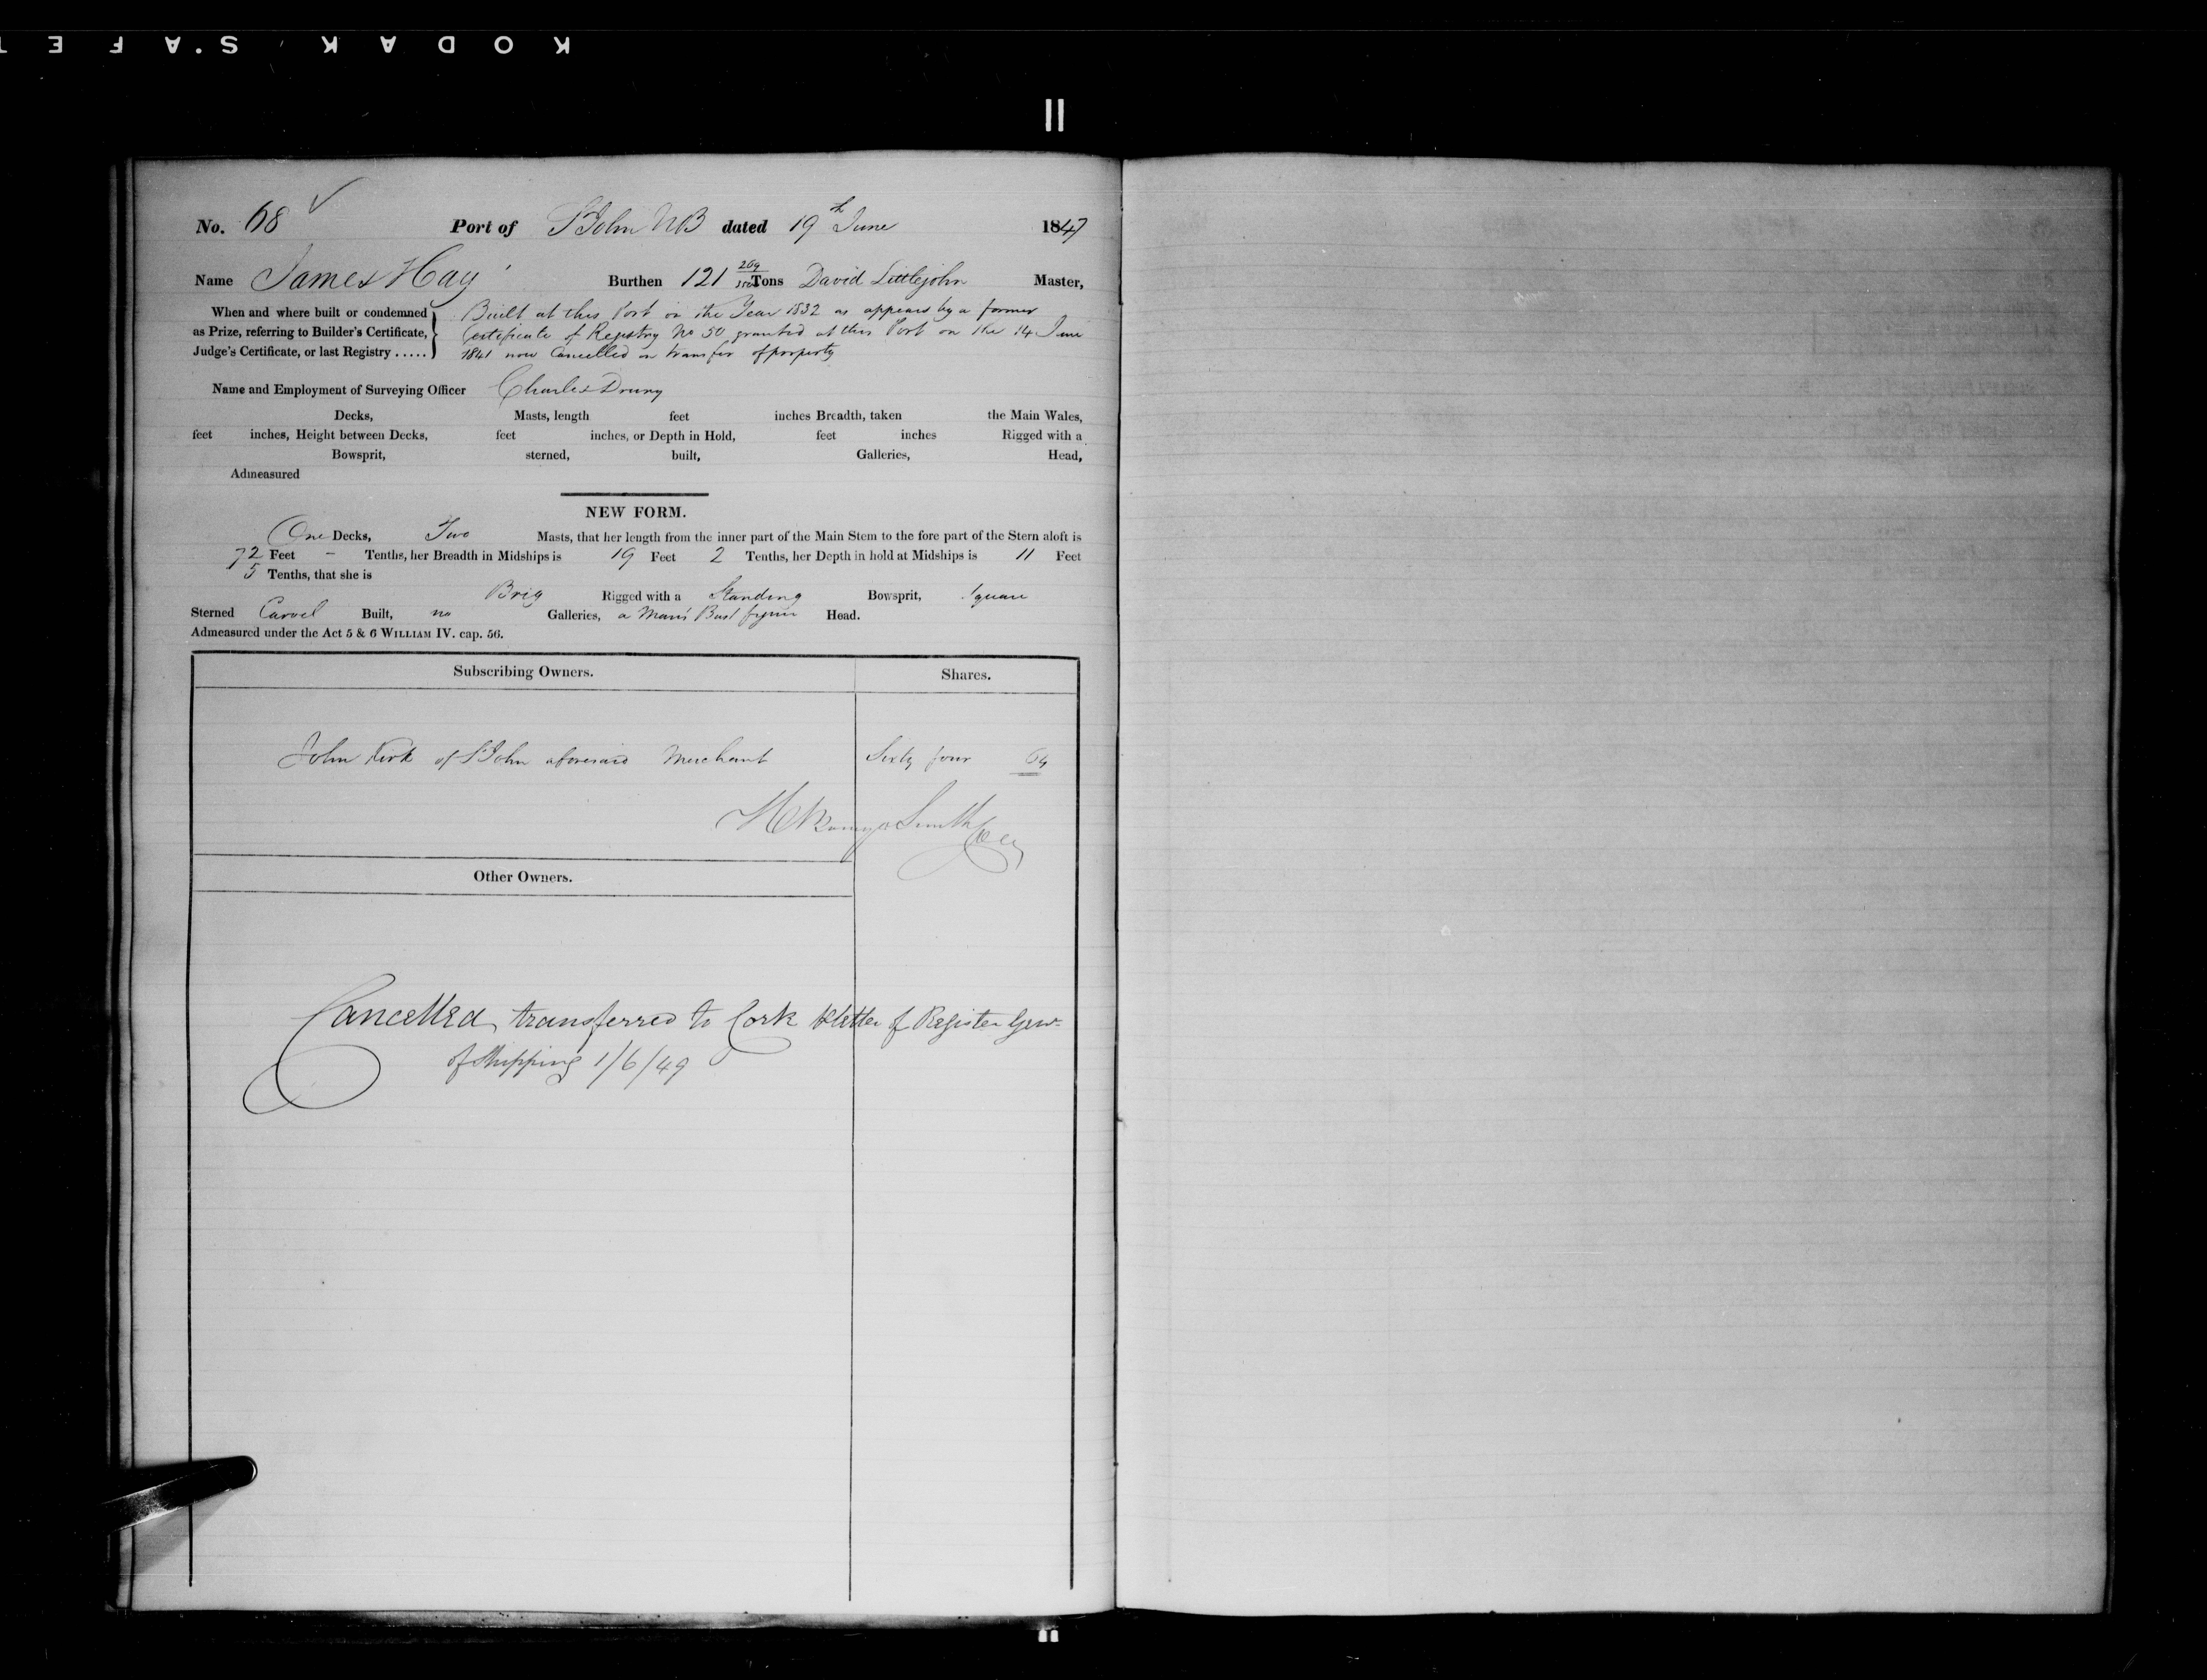 KODAK S.AFET
No. 68 Port of St John NB dated 19th June 1847
Name James Hay Burthen 121 269/3500 Tons David Littlejohn Master,
When and where built or condemned as Prize, referring to Builder's Certificate, Judge's Certificate, or last Registry .....
Built at this Port in the Year 1832 as appears by a former
Certificate of Registry No 50 granted at this Port on the 14 June
1841 now Cancelled on transfer of property
Name and Employment of Surveying Officer Charles Drury
Decks, Masts, length feet inches Breadth, taken the Main Wales,
feet inches, Height between Decks, feet inches, or Depth in Hold, feet inches Rigged with a
Bowsprit, sterned, built, Galleries, Head,
Admeasured
NEW FORM.
One Decks, Two Masts, that her length from the inner part of the Main Stem to the fore part of the Stern aloft is
72 Feet - Tenths, her Breadth in Midships is 19 Feet 2 Tenths, her Depth in hold at Midships is 11 Feet
5 Tenths, that she is
Brig Rigged with a Standing Bowsprit, Square
Sterned Carvel Built, no Galleries, a Man's Bust figure Head.
Admeasured under the Act 5 & 6 WILLIAM IV. cap. 56.
Subscribing Owners. Shares.
John Kirk of St John aforesaid Merchant Sixty four 64
Smith
Other Owners.
Cancelled, transferred to Cork letter of Register Genl
of Shipping 1/6/49